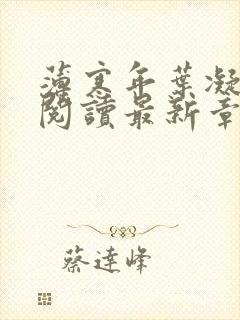 薄寒年葉凝
閱讀最新章
蔡達峰